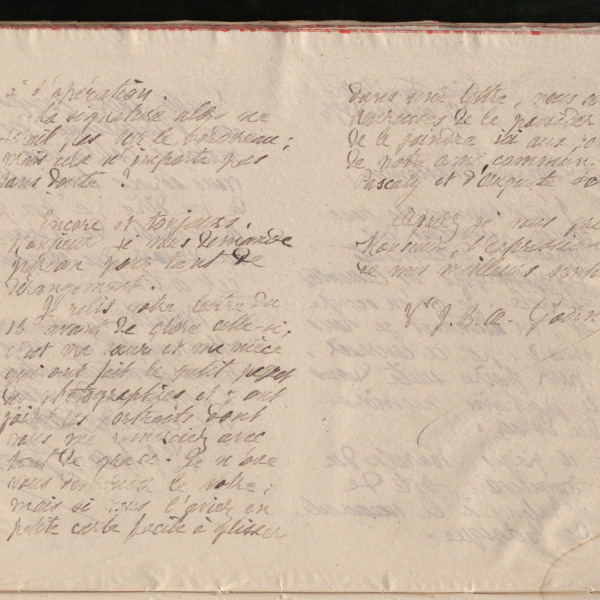 d'opération.
La signature alors ne
serait pas sur le bordereau;
mais cela n'importe pas
sans doute ?
Encore et toujours,
Monsieur, je vous demande
pardon pour tant de
dérangement.
Je relis votre lettre du
13 avant de clore celle-ci,
c'est ma sœur et ma nièce
qui ont fait le petit paquet
de photographies et y ont
joint les portraits dont
vous me remerciez avec
tant de grâce. Je n'ose
vous demander le votre;
mais si vous l'aviez en
petite carte facile à glisser
dans une lettre, nous
heureuses de le posséder
de le joindre ici aux
de notre ami commun
Pascaly et d'Auguste
Agréez je vous
Monsieur, l'expression
de nos meilleurs
Vve J. B. A. Godin